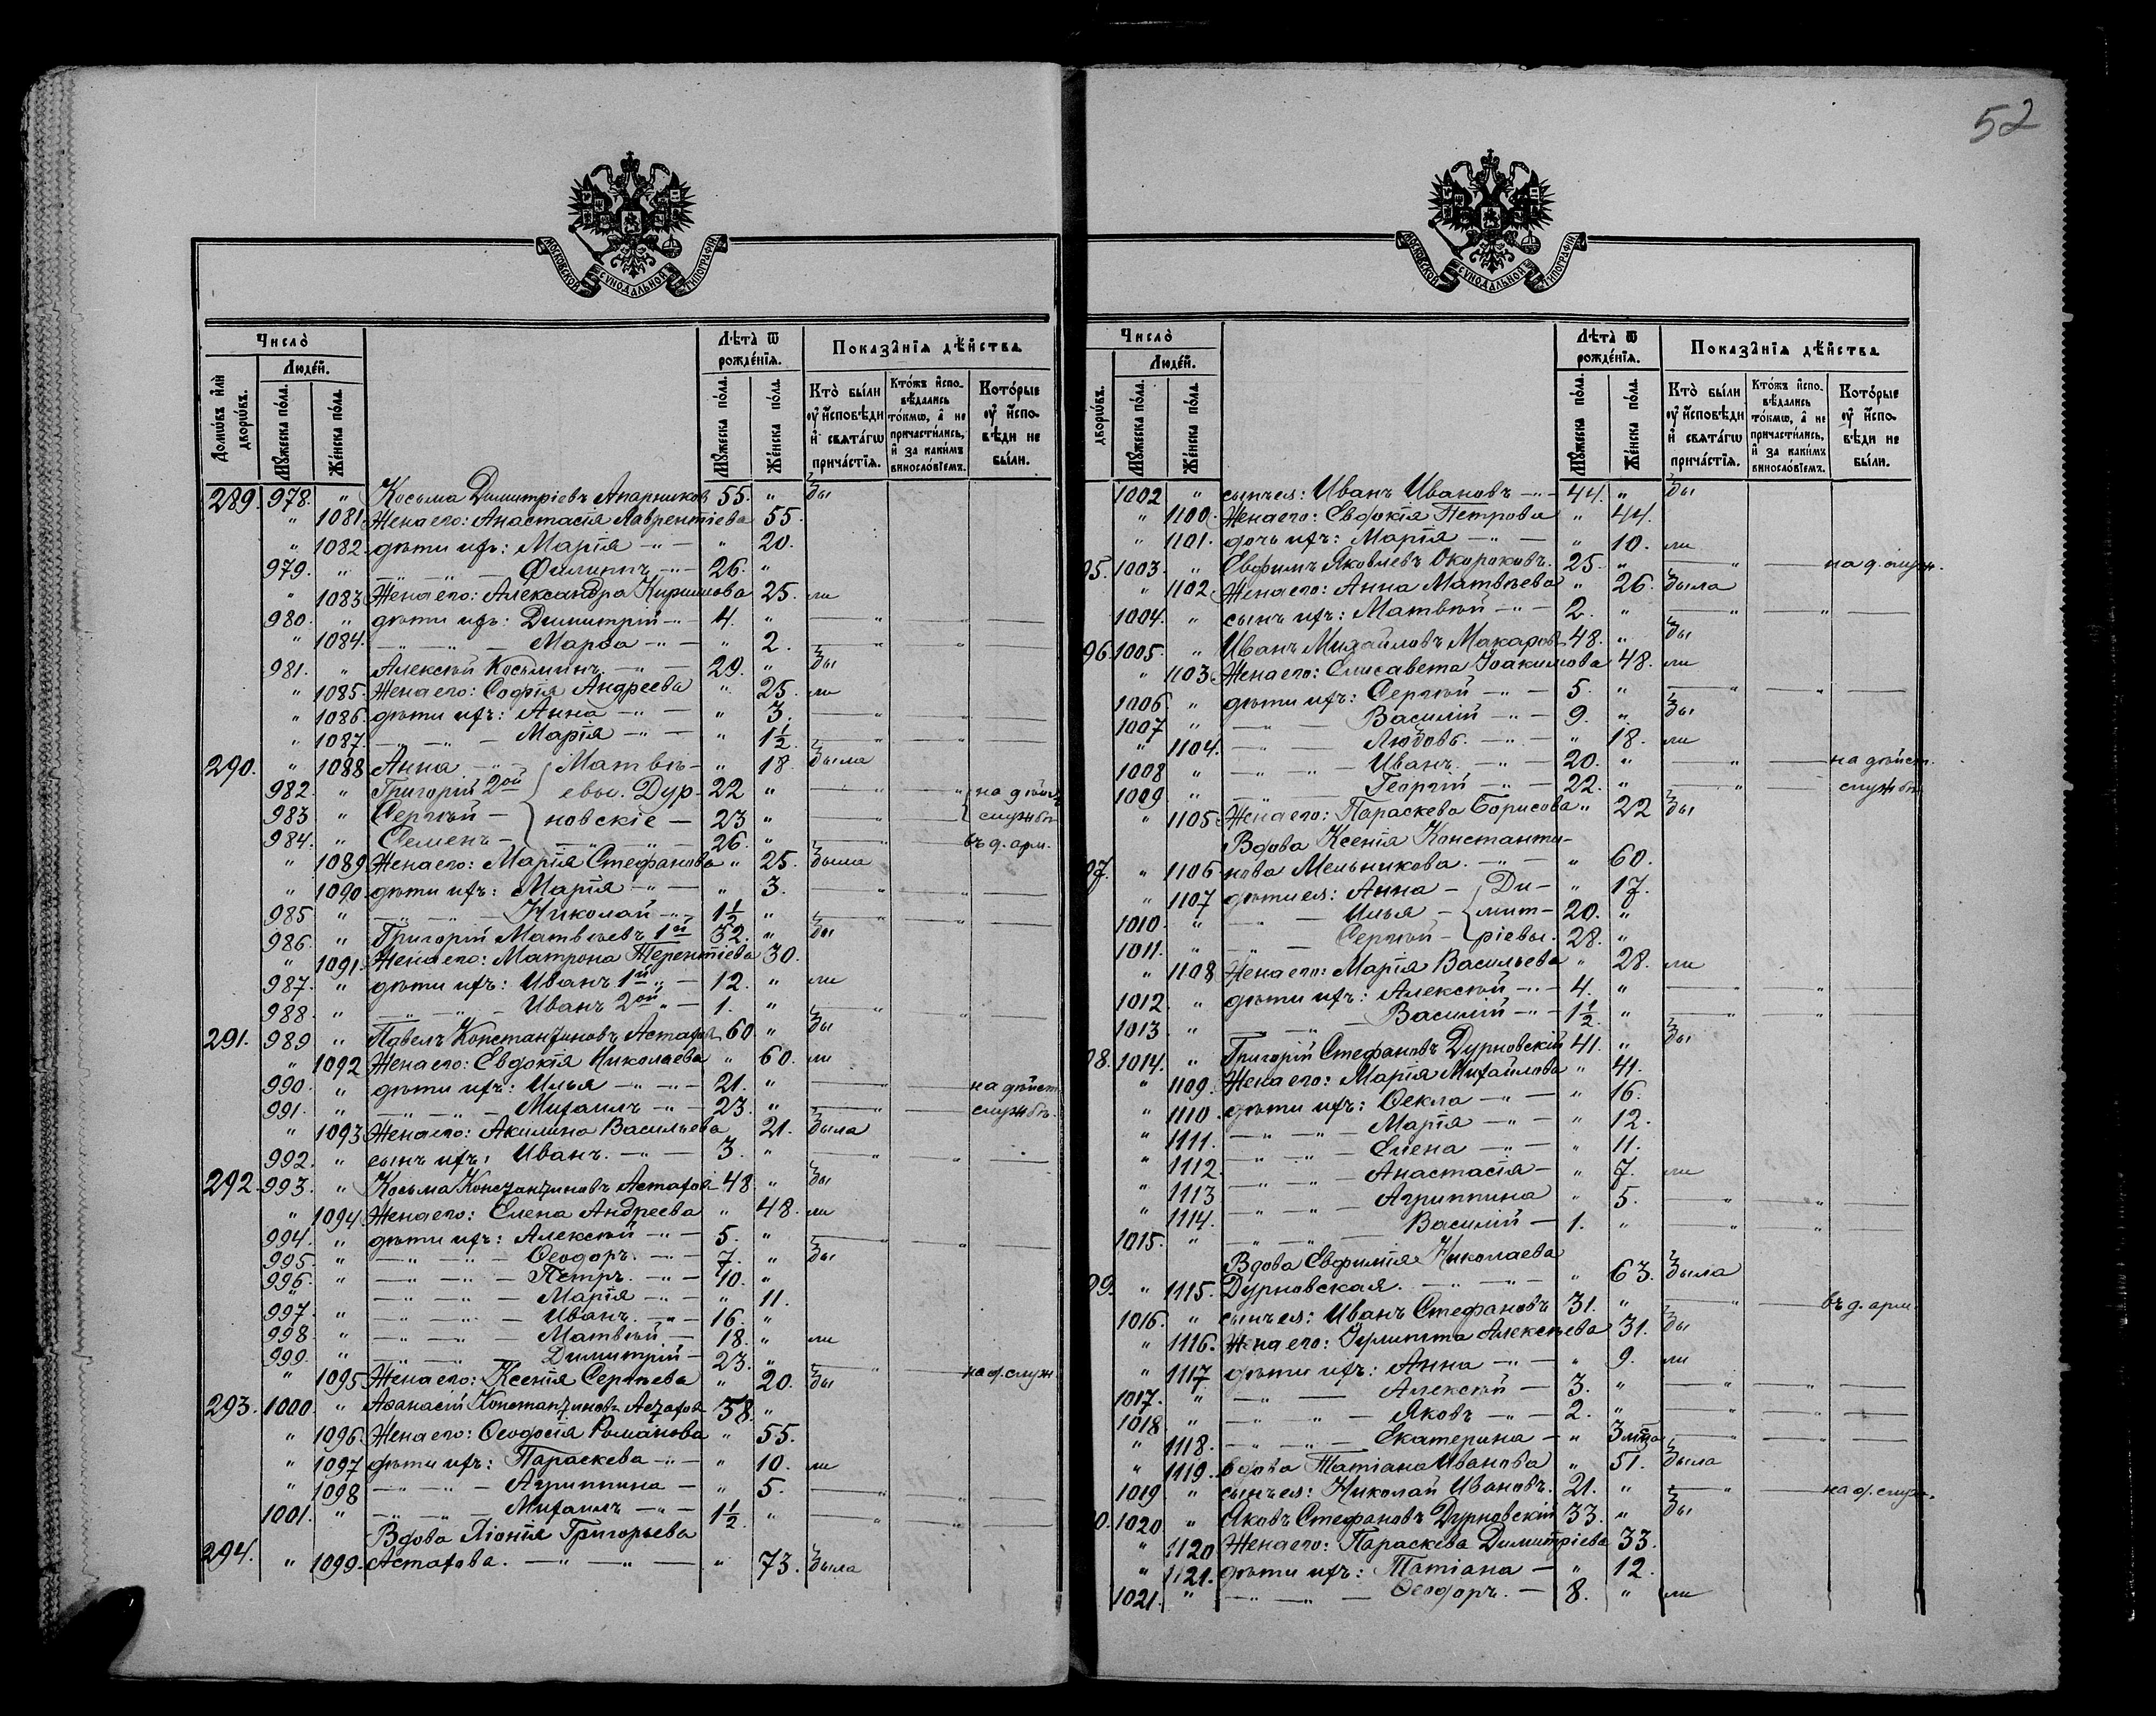 52
МОСКОВСКОЙ СѴНОДАЛЬНОЙ ТИПОГРАФІИ.
Число̀
Людей.
Домѡвъ и҆лѝ дворѡвъ.
Мꙋжеска по́ла.
Же́нска по́ла.
Лѣта̀ ѿ рожде́нїѧ.
Мꙋжеска по́ла.
Же́нска по́ла.
Показа̑нїѧ дѣ́йства
Кто̀ бы́ли ᲂу҆ и҆сповѣди и҆ свѧта́гѡ прича́стїѧ.
Кто́жъ и҆спо- вѣдались то́кмѡ, а҆ не причасти́лись, и҆ за каки́мъ винослов́їемъ.
Кото́рые ᲂу҆ и҆спо- вѣди не бы́ли.
289. 978. " Косьма Димитріевъ Апарников 55. " бы
" 1081. Жена его: Анастасія Лаврентіева 55.
" 1082. дѣти ихъ: Марія —"— " 20.
979. " —"— —"— Филиппъ —"— 26. "
" 1083 Жена его: Александра Кириллова 25. ли
980. " дѣти ихъ: Димитрій —"— 4. " —"— " —
" 1084. —"— —"— Марѳа —"— " 2. —"— " —
981. " Алексѣй Косьминъ —"— 29. " бы
" 1085. Жена его: Софія Андреева " 25. ли
" 1086. дѣти ихъ: Анна —"— " 3. —"— " —
" 1087. —"— —"— Марія —"— " 1½. —"— " —
290. " 1088 Анна —"— { Матвѣ- " 18. была
982. " Григорій 2ой { евы. Дур- 22 " —"— " { на дѣйст.
983 " Сергѣй — { новскіе — 23 " —"— { службѣ
984. " Семенъ —"— —"— 26. " —"— въ д. арм.
" 1089 Жена его: Марія Стефанова " 25. была
" 1090 дѣти ихъ: Марія —"— " 3. —"— " —
985 " —"— —"— Николай —"— 1½ " —"— " —
986. " Григорій Матвѣевъ 1й 32. " бы
" 1091. Жена его: Матрона Терентіева 30.
987. " дѣти ихъ: Иванъ 1й " — 12. " ли
988. " —"— —"— Иванъ 2ой " — 1. " —"— " —
291. 989 " Павелъ Константиновъ Астахов 60 " бы
" 1092 Жена его: Евдокія Николаева " 60. ли
990. " дѣти ихъ: Илья —"— —"— 21. " —"— на дѣйст.
991. " —"— —"— Михаилъ —"— 23. " —"— службѣ.
" 1093 Жена его: Акилина Васильева 21. была
992. " сынъ ихъ: Иванъ. —"— 3. " —"— " —
292. 993. " Косьма Константиновъ Астахов 48 " бы
" 1094 Жена его: Елена Андреева " 48. ли
994. " дѣти ихъ: Алексѣй —"— 5. " —"— " —
995. " —"— —"— Ѳеодоръ. —"— 7. " бы
996. " —"— —"— Петръ. —"— 10. "
" —"— —"— Марія —"— " 11.
997. " —"— —"— Иванъ. —"— 16. "
998. " —"— —"— Матвѣй — 18. " ли
999. " —"— —"— Димитрій — 23. " —"— на д. служ.
" 1095 Жена его: Ксенія Сергѣева " 20. бы
293. 1000. " Аѳанасій Константиновъ Астахов 58. "
" 1096. Жена его: Ѳеодосія Романова " 55.
" 1097 дѣти ихъ: Параскева —"— " 10. ли
" 1098 —"— —"— Агриппина — " 5. —"— " —
1001. " —"— —"— Михаилъ —"— 1½ " —"— " —
Вдова Ѳіонія Григорьева
294. " 1099. Астахова. —"— —"— " 73. была
Число̀
Людей.
дворѡвъ.
Мꙋжеска по́ла.
Же́нска по́ла.
Лѣта̀ ѿ рожде́нїѧ.
Мꙋжеска по́ла.
Же́нска по́ла.
Показа̑нїѧ дѣ́йства
Кто̀ бы́ли ᲂу҆ и҆сповѣди и҆ свѧта́гѡ прича́стїѧ.
Кто́жъ и҆спо- вѣдались то́кмѡ, а҆ не причасти́лись, и҆ за каки́мъ винослов́їемъ.
Кото́рые ᲂу҆ и҆спо- вѣди не бы́ли.
МОСКОВСКОЙ СѴНОДАЛЬНОЙ ТИПОГРАФІИ.
1002 " сынъ ея: Иванъ Ивановъ —"— 44. " бы
" 1100. Жена его: Евдокія Петрова " 44.
" 1101. дочь ихъ: Марія —"— " 10. ли
95. 1003. " Евфимъ Яковлевъ Окороковъ. 25. " —"— на д. служ.
" 1102. Жена его: Анна Матвѣева " 26. была
1004. " сынъ ихъ: Матвѣй —"— 2. " —"— " —
96. 1005. " Иванъ Михайловъ Макаров 48. " бы
" 1103 Жена его: Елисавета Іоакимова 48. ли
1006. " дѣти ихъ: Сергѣй —"— 5. " —"— " —
1007 " —"— Василій —"— 9. " бы
" 1104. —"— Любовь. —"— " 18. ли
1008 " —"— —"— Иванъ. —"— 20. " —"— на дѣйст.
1009 " —"— Георгій —"— 22. " —"— службѣ
" 1105 Жена его: Параскева Борисова " 22 бы
Вдова Ксенія Константи-
97. " 1106 нова Мельникова. —"— " 60.
" 1107 дѣти ея: Анна — { Ди- " 17.
1010. " —"— Илья — { мит- 20. "
1011. " —"— Сергѣй — { ріевы. 28. "
" 1108 Жена его: Марія Васильева " 28. ли
1012. " дѣти ихъ: Алексѣй —"— 4. " —"— " —
1013. " —"— Василій —"— 1½. " —"— " —
98. 1014. " Григорій Стефановъ Дурновскій 41. " бы
" 1109. Жена его: Марія Михайлова " 41.
" 1110. дѣти ихъ: Ѳекла —"— " 16.
" 1111. —"— —"— Марія —"— " 12.
" 1112. —"— —"— Елена —"— " 11.
" 1113 —"— —"— Анастасія — " 7. ли
" 1114. —"— —"— Агриппина " 5. —"— " —
1015. " —"— —"— Василій — 1. " —"— " —
Вдова Евфимія Николаева
99. " 1115. Дурновская. —"— —"— " 63. была
1016. " сынъ ея: Иванъ Стефановъ 31. " —"— въ д. арм.
" 1116. Жена его: Іулитта Алексѣева 31. бы
" 1117 дѣти ихъ: Анна —"— " 9. ли
1017. " —"— Алексѣй — 3. " —"— " —
1018 " —"— —"— Яковъ —"— 2. " —"— " —
" 1118. —"— —"— Екатерина — " 3 мѣс. —"— " —
" 1119. вдова Татіана Иванова " 51. была
1019 " сынъ ея: Николай Ивановъ. 21. " —"— на д. служ.
0. 1020 " Яковъ Стефановъ Дурновскій 33. " бы
" 1120 Жена его: Параскева Димитріева 33.
" 1121. дѣти ихъ: Татіана — " 12.
1021. " —"— —"— Ѳеодоръ. — 8. " ли